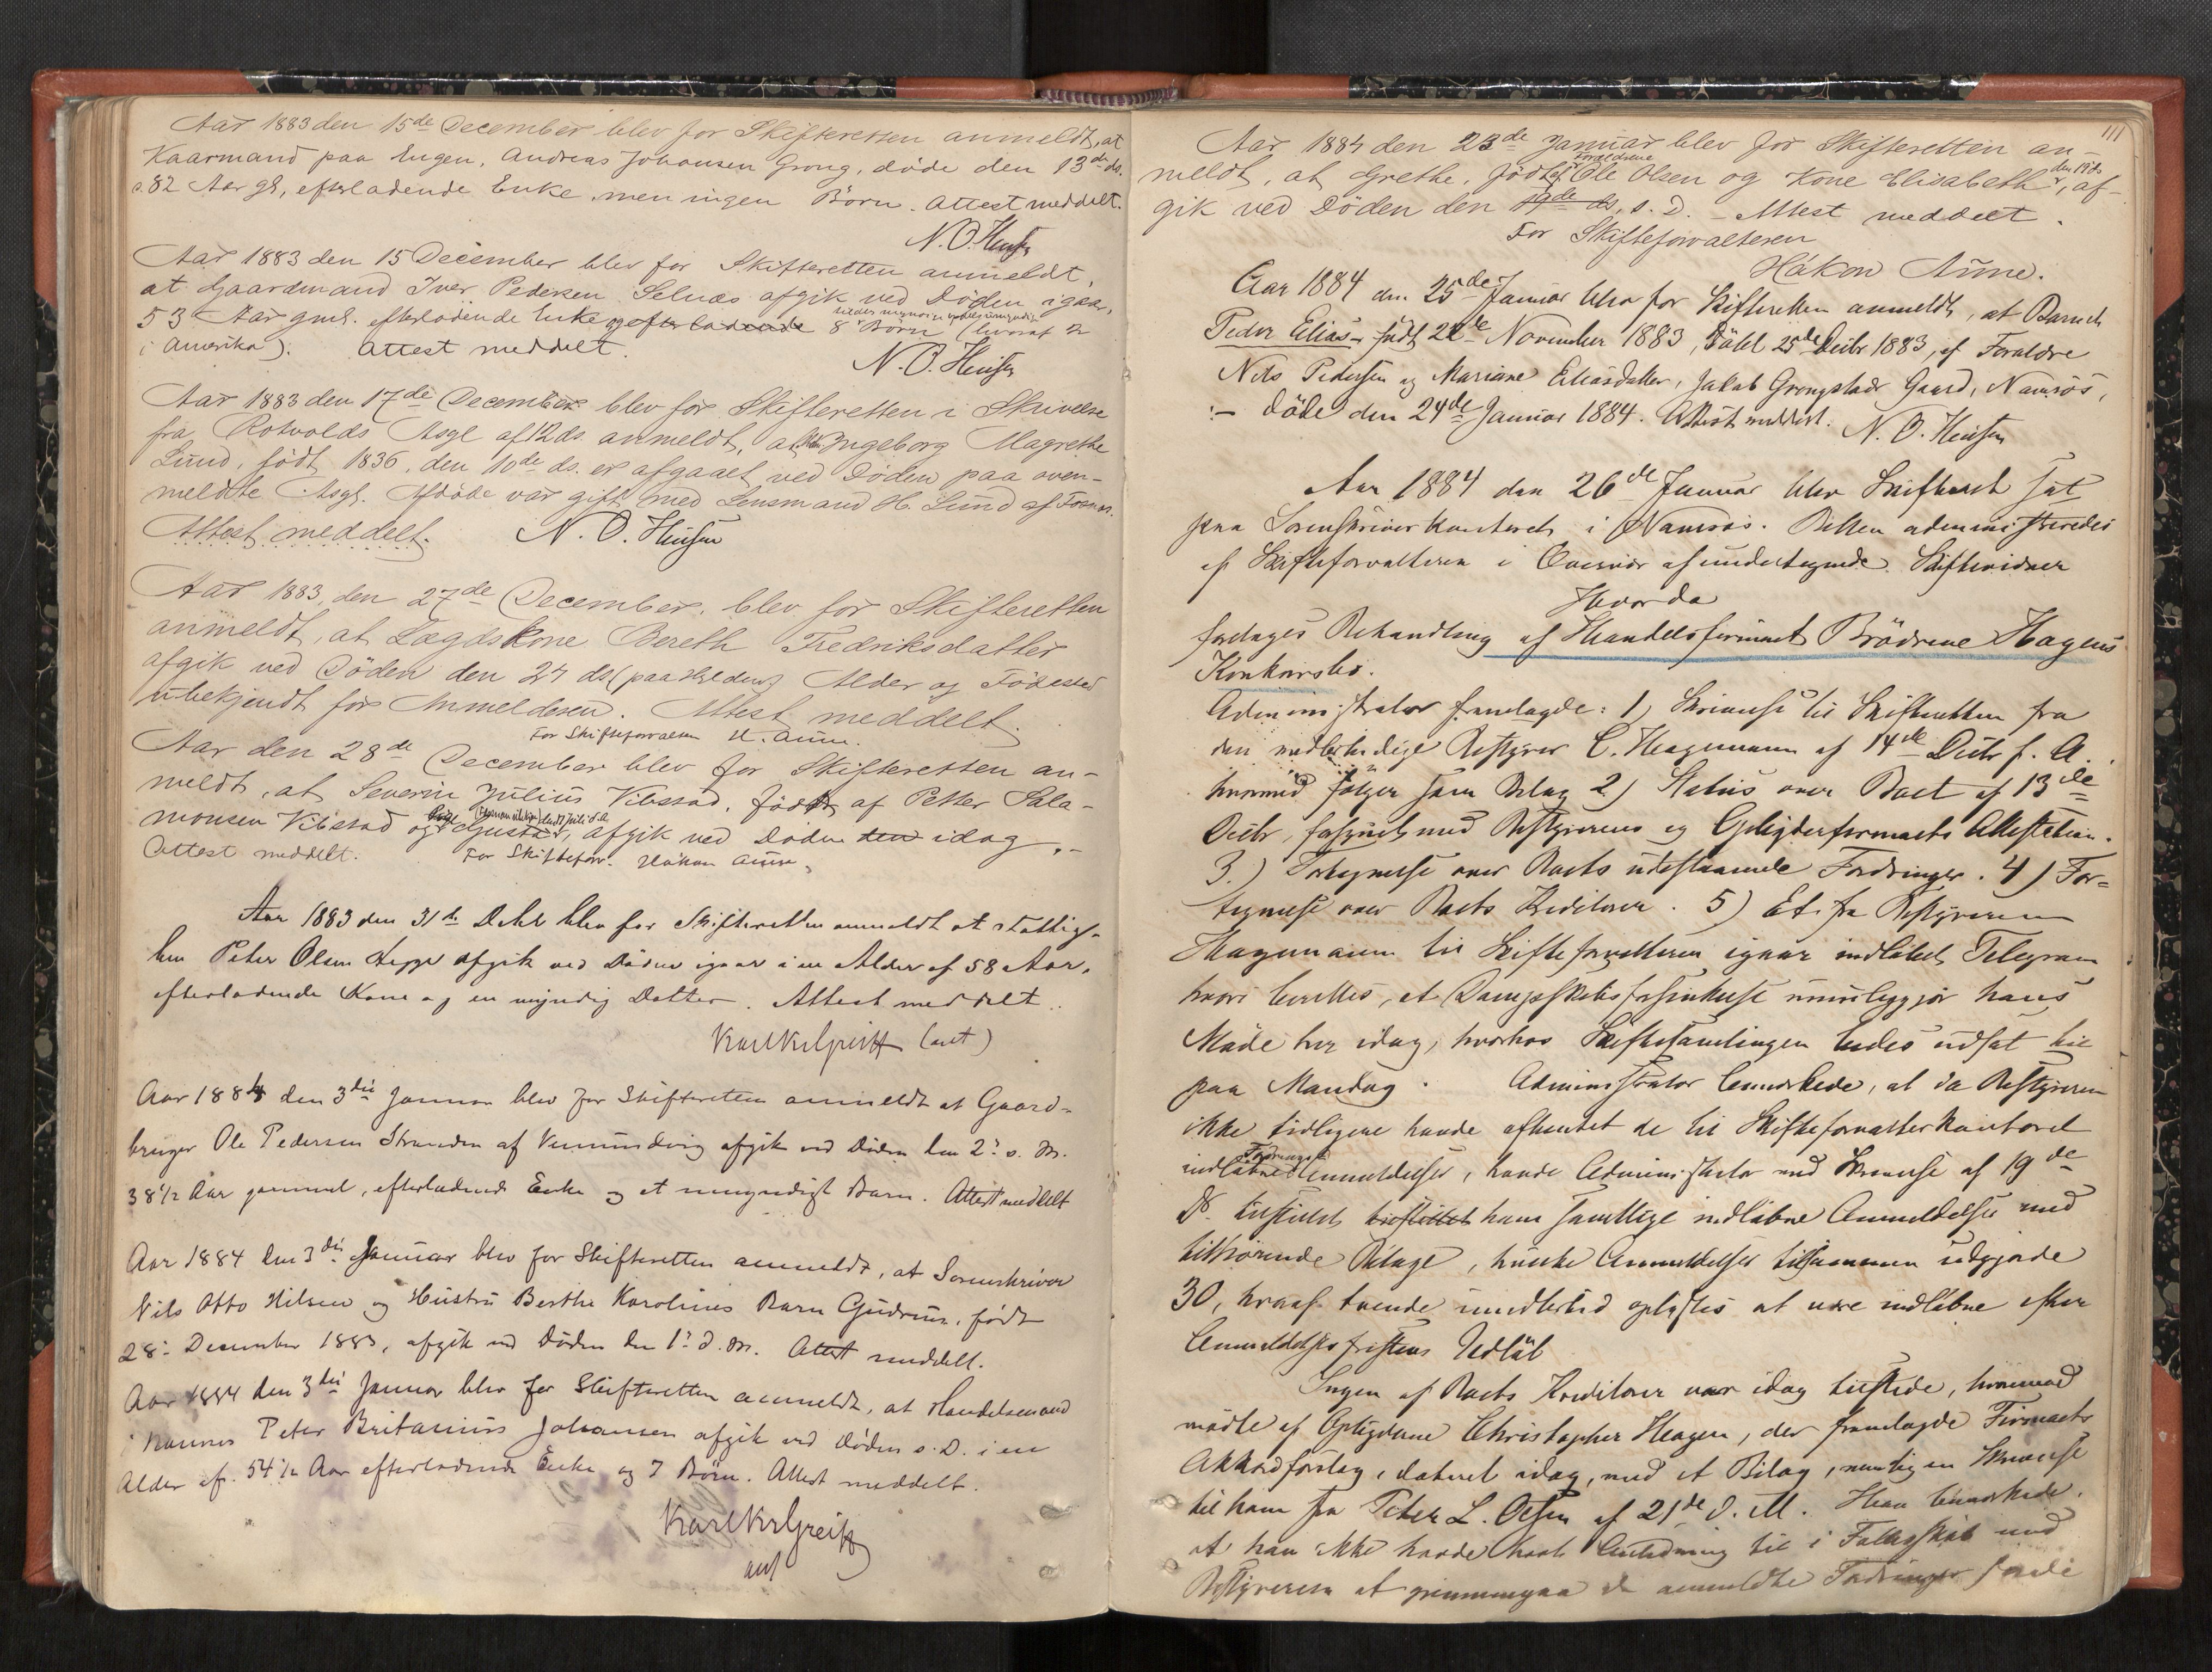 Aar 1883 den 15de December blev for Skifteretten anmeldt, at
Kaarmand paa Engen, Andreas Johansen Grong, døde den 13de ds.
82 Aar gl, efterladende Enke, men ingen Børn. Attest meddelt.
N. O. Hensen
Aar 1883 den 15 December blev for Skifteretten anmeldt,
at Gaardmand Iver Pedersen Selnæs afgik ved Døden igaar,
53 Aar gml. efterladende Enke og efterladende 8 Børn (hvoraf 2
i Amerika). Attest meddelt.
N. O. Hensen
Aar 1883 den 17de December blev for Skifteretten i Skrivelse
fra Rotvolds Asyl af 12 ds. anmeldt, at Ingeborg Magrethe
Lund, født 1836, den 10de ds. er afgaaet ved Døden paa oven-
meldte Asyl. Afdøde var gift med Lensmand H. Lund af Fosnæs.
Attest meddelt. N. O. Hensen
Aar 1883, den 27de December, blev for Skifteretten
anmeldt, at Lægdskone Bereth Fredriksdatter
afgik ved Døden den 24 ds (paa Helden) Alder og Fødested
ubekjendt for Anmelderen. Attest meddelt.
For Skifteforvalteren H. Aune.
Aar den 28de December blev for Skifteretten an-
meldt, at Severin Julius Vibstad, født af Petter Sala-
monsen Vibstad og Gusta, afgik ved Døden den idag.-
Attest meddelt. For Skifteforv. Håkon Aune.
Aar 1883 den 31te Decbr blev for Skifteretten anmeldt at Fattig-
lem Peter Olsen Hegge afgik ved Døden igaar i en Alder af 58 Aar,
efterladende Kone og en myndig Datter. Attest meddelt.
Karl Kr Greiff (aut)
Aar 1884 den 3die Januar blev for Skifteretten anmeldt at Gaard-
bruger Ole Pedersen Stranden af Vemundvig afgik ved Døden den 2: s. M.
38 1/2 Aar gammel, efterladende Enke og et umyndigt Barn. Attest meddelt
Aar 1884 den 3die Januar blev for Skifteretten anmeldt, at Sorenskriver
Nils Otto Hilsen og Hustru Berthe Karolines Barn Gudrun, født
28: December 1883, afgik ved Døden den 1: d. M. Attest meddelt.
Aar 1884 den 3die Januar blev for Skifteretten anmeldt, at Handelsmand
i Namsos Peter Britanius Johansen afgik ved Døden s. D. i en
Alder af 54 1/2 Aar efterladende Enke og 7 Børn. Attest meddelt.
Karl Kr Greiff
aut
111
Aar 1884 den 23de Januar blev for Skifteretten an-
meldt, at Grethe, født af Forældrene Ole Olsen og Kone Elisabeth, den 19 ds af-
gik ved Døden den 19de ds, s. D. - Attest meddelt.
For Skifteforvalteren
Håkon Aune.
Aar 1884 den 25de Januar blev for Skifteretten anmeldt, at Barnet
Peder Elias - født 22de November 1883, døbt 25de Decbr 1883, af Forældre
Nils Pedersen og Mariane Eliasdatter, Jakob Grongstads Gaard, Namsos,
:- døde den 24de Januar 1884. Attest meddelt. N. O. Hensen
Aar 1884 den 26de Januar blev Skifteret sat
paa Sorenskriverkontoret i Namsos. Retten administreredes
af Skifteforvalteren i Overvær af undertegnede Skiftevidner
Hvorda
foretoges Behandling af Handelsfirmaet Brødrene Hagens
Konkursbo.
Administrator fremlagde: 1) Skrivelse til Skifteretten fra
den midlertidige Bestyrer C. Hagemann af 14de Decbr f. A.
hvormed følger som Bilag 2) Status over Boet af 13de
Decbr, forsynet med Bestyrerens og Opbyderfirmaets Attestation.
3.) Fortegnelse over Boets udestaaende Fordringer. 4) For-
tegnelse over Boets Kreditorer. 5) Et fra Bestyreren
Hagemann til Skifteforvalteren igaar indløbet Telegram
hvori berettes, at Dampskibsforsinkelse umuliggjør hans
Møde her idag, hvorhos Skiftesamlingen bedes udsat til
paa Mandag. Administrator bemærkede, at da Bestyreren
ikke tidligere havde afhentet de til Skifteforvalterkontoret
indløbne Fordrings Anmeldelser, havde Administrator med Skrivelse af 19de
ds. tilstillet tilstillet ham samtlige indløbne Anmeldelser med
tilhørende Bilage, hvilke Anmeldelser tilsammen udgjorde
30, hvoraf tvende imidlertid oplystes at være indløbne efter
Anmeldelsesfristens Udløb
Ingen af Boets Kreditorer var idag tilstede, hvorimod
mødte af Opbyderne Christopher Hagen, der fremlagde Firmaets
Akkordforslag, dateret idag, med et Bilag, nemlig en Skrivelse
til ham fra Peter L. Olsen af 21de d. M. Han bemærkede,
at han ikke havde havt Anledning til i Fællesskab med
Bestyreren at gjennemgaa de anmeldte Fordringer fordi